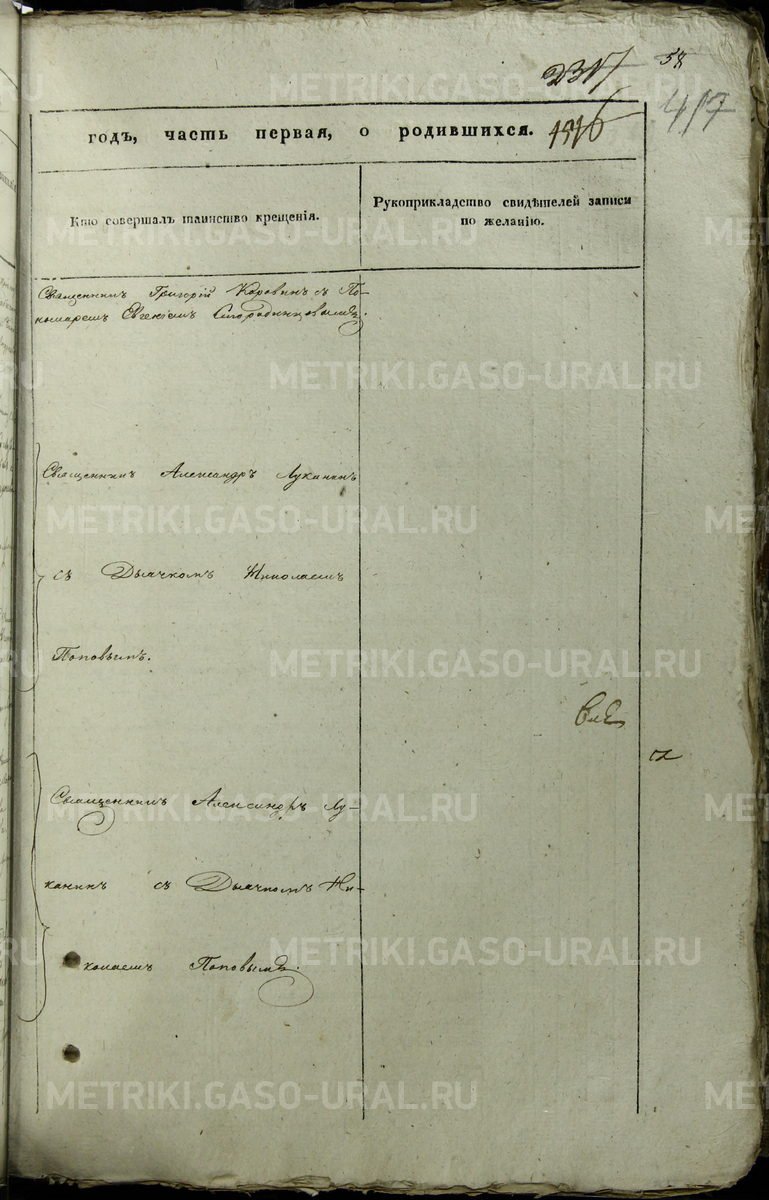 58
417
годъ, часть первая, о родившихся.
Кто совершалъ таинство крещенія.
Рукоприкладство свидѣтелей записи
по желанію.
Священникъ Григорій Коровинъ съ По-
номаремъ Евгеніемъ Стародинцовымъ.
Священникъ Александръ Луканинъ
съ Дьячкомъ Николаемъ
Поповымъ.
Священникъ Александръ Лу-
канинъ съ Дьячкомъ Ни-
колаемъ Поповымъ.
METRIKI.GASO-URAL.RU